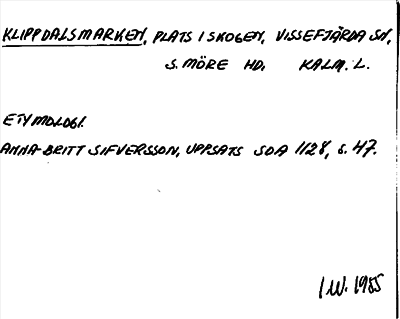 KLIPPDALSMARKEN, PLATS I SKOGEN, VISSEFJÄRDA SN,
S. MÖRE HD. KALM. L.
ETYMOLOGI.
ANNA-BRITT SIFVERSSON, UPPSATS SOA 1128, s. 47.
I W. 1985